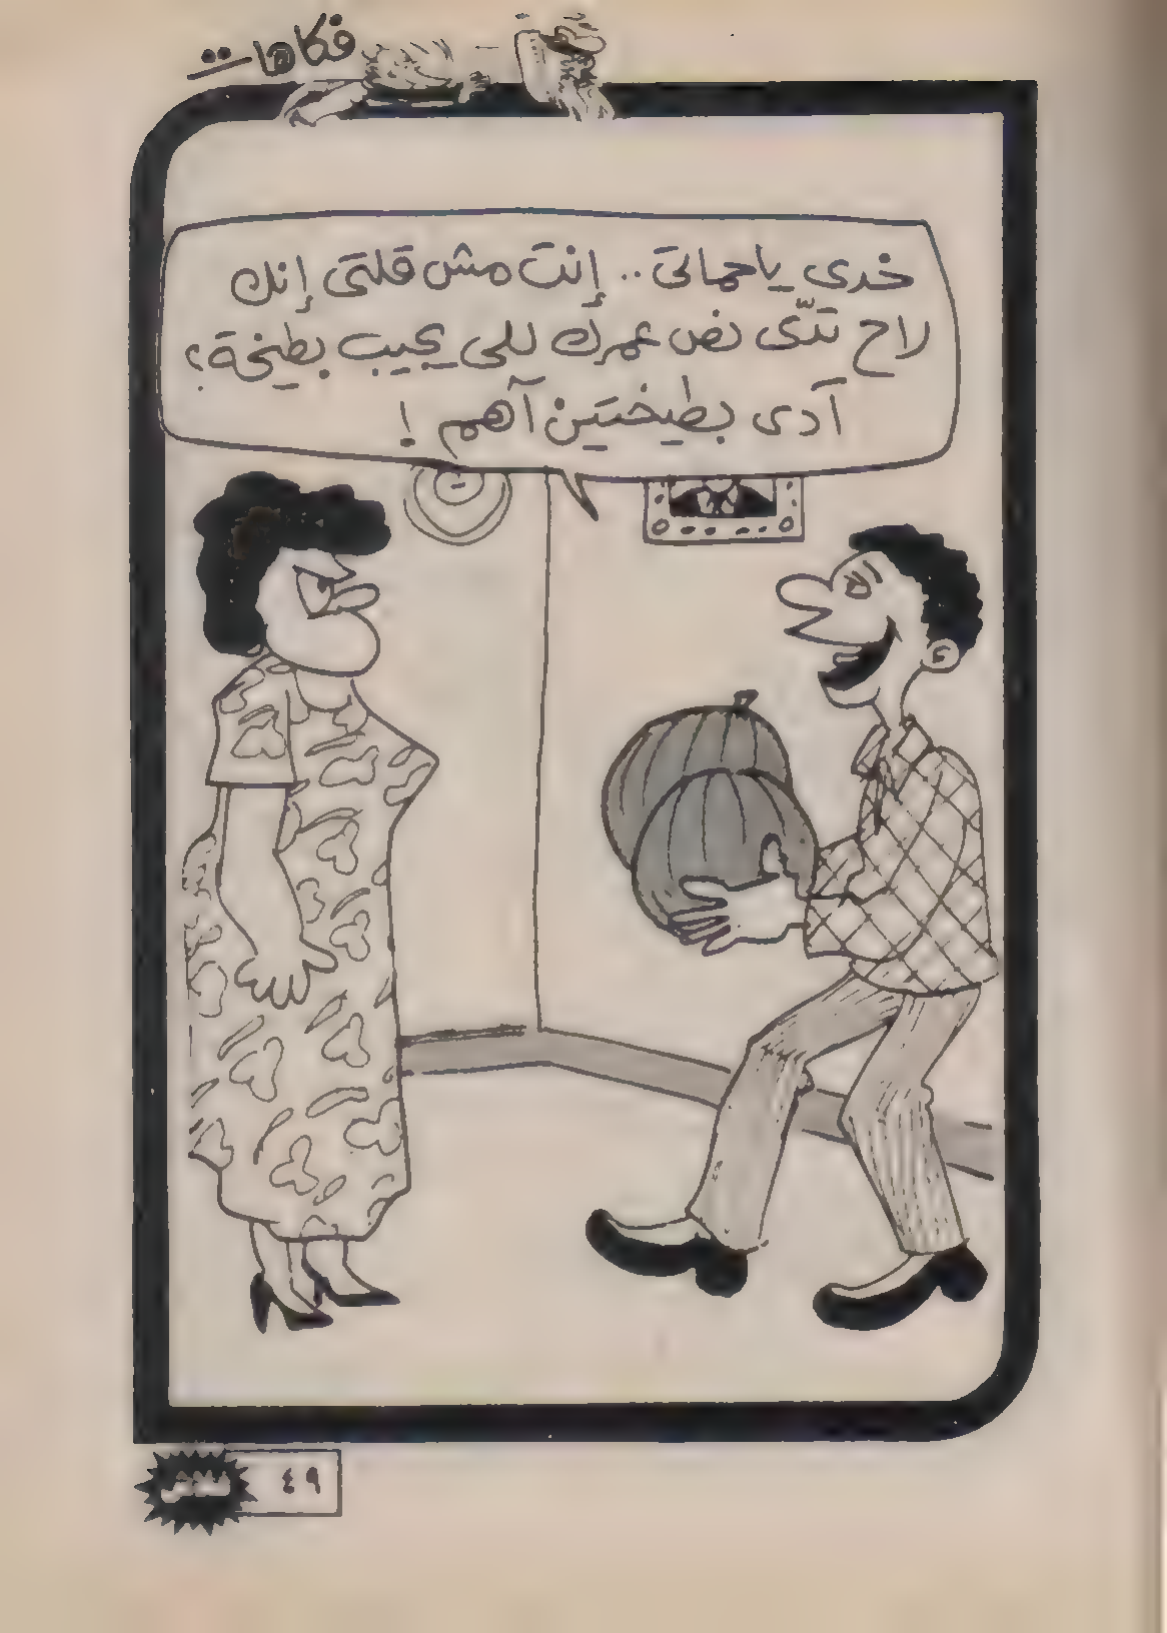 فكاهات
خدى ياحماتى .. إنت مش قلتى إنك
لاح تدّى نص عمرك للى يجيب بطيخة؟
آدى بطيختين آهم !
٤٩
فلاش